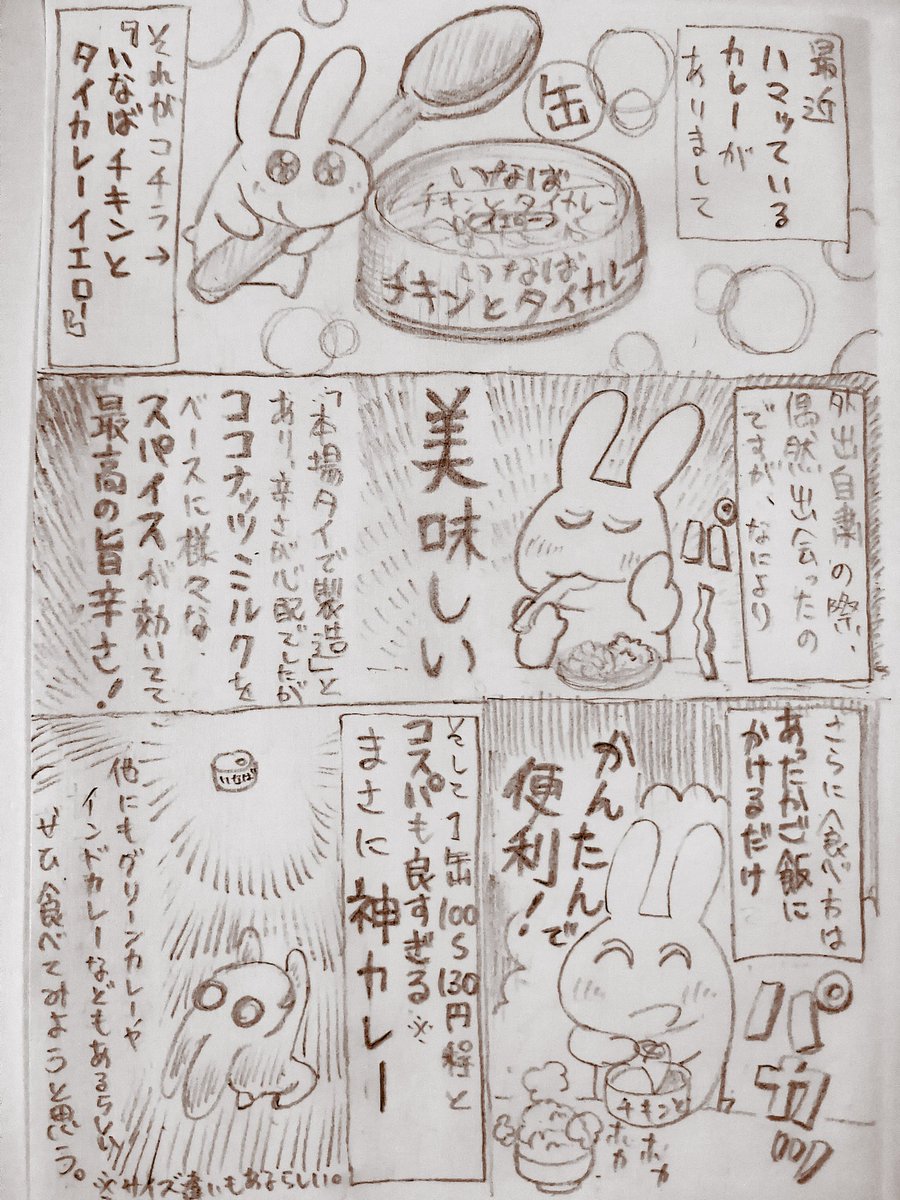 最近
ハマッている
カレーが
ありまして
缶
いなば
チキンとタイカレー
イエロー
いなば
チキンとタイカレー
それがコチラ→
いなばチキンと
タイカレーイエロー
外出自粛の際、
偶然出会ったの
ですが、なにより
パ
美味しい
「本場タイで製造。」と
あり、辛さが心配でしたが
ココナッツミルクを
ベースに様々な
スパイスが効いてて
最高の旨辛さ！
さらに食べ方は
あったかご飯に
かけるだけ
パカッ
かんたんで
便利！
チキンと
ホカ
ホカ
そして1缶100〜130円程と
コスパも良すぎる※
まさに神カレー
いなば
他にもグリーンカレーや
インドカレーなどもあるらしい
ぜひ食べてみようと思う。
※サイズ違いもあるらしい。